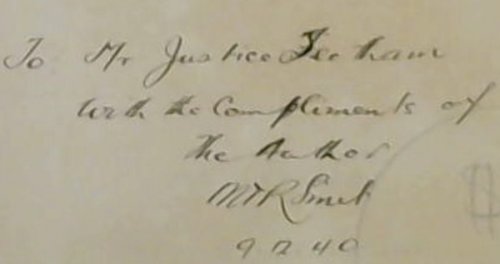 To Mr Justice Feetham
with the Compliments of
the Author
MTR Smit
9 12 40